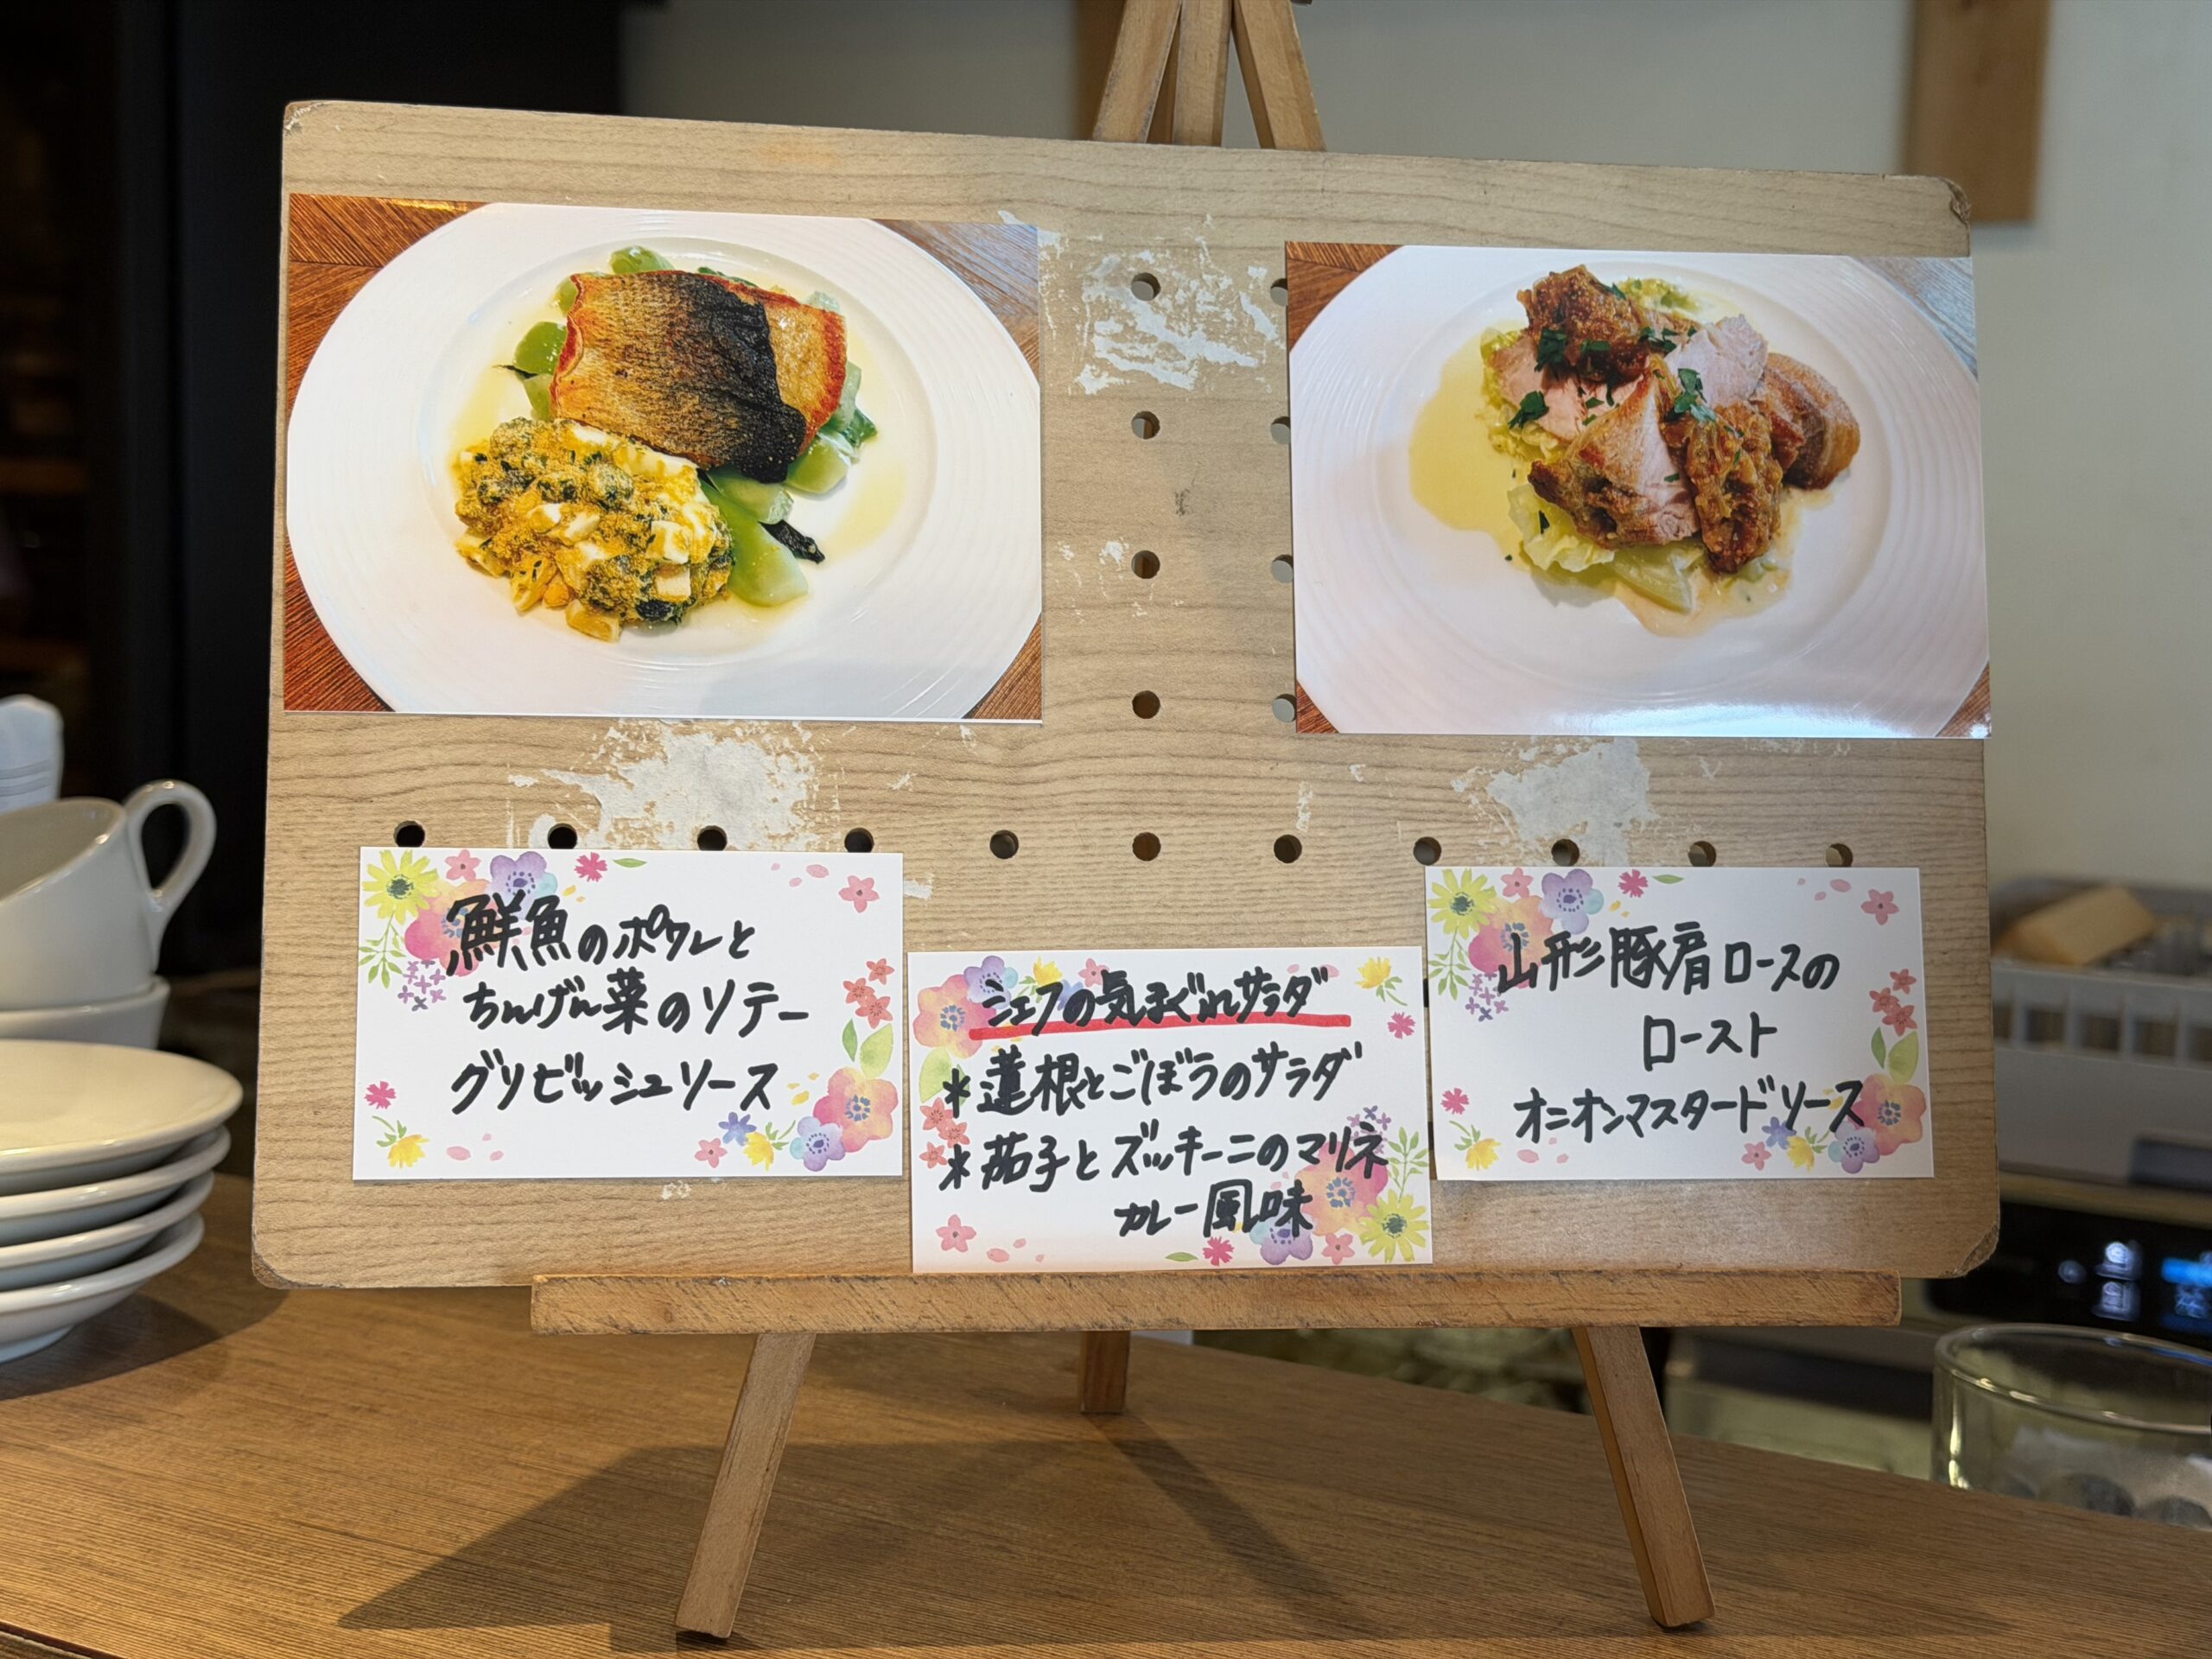 鮮魚のポワレと
ちんげん菜のソテー
グリビッシュソース
シェフの気まぐれサラダ
*蓮根とごぼうのサラダ
*茄子とズッキーニのマリネ
カレー風味
山形豚肩ロースの
ロースト
オニオンマスタードソース